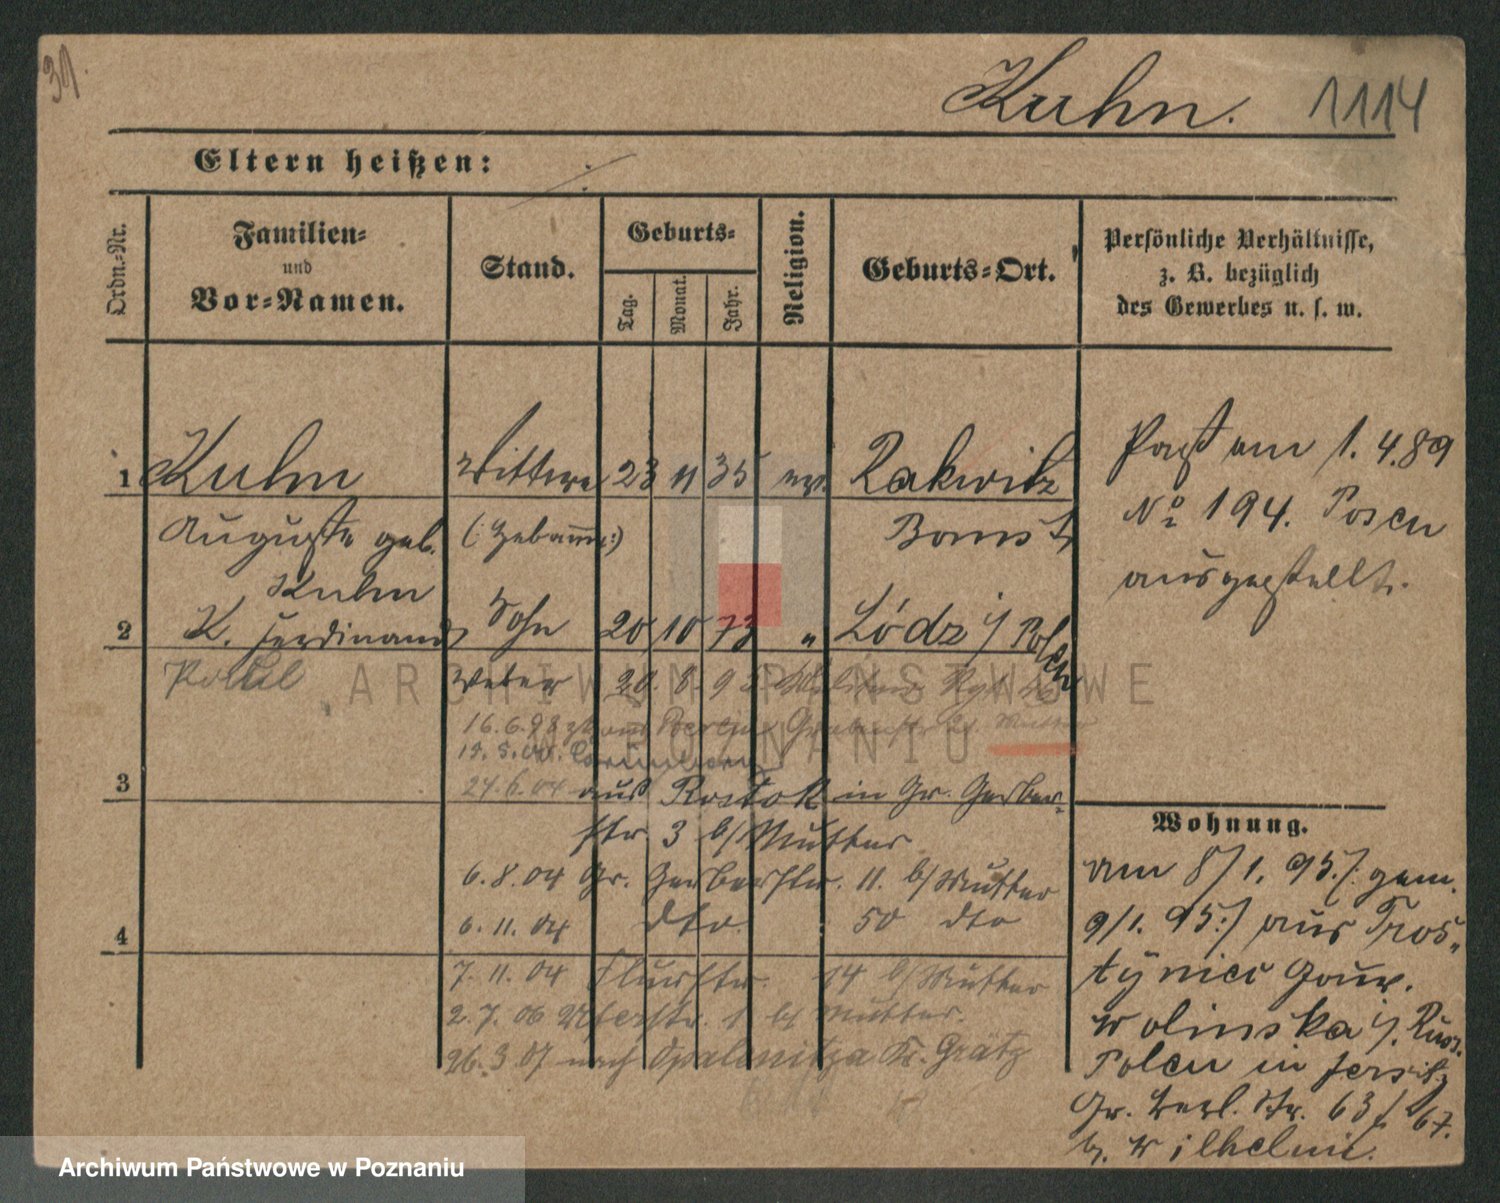 31.
Kuhn. 1114
Eltern heißen:
Ordn.-Nr.
Familien-
und
Vor-Namen.
Stand.
Geburts-
Tag.
Monat.
Jahr.
Religion.
Geburts-Ort.
Persönliche Verhältnisse,
z. B. bezüglich
des Gewerbes u. s. w.
1 Kuhn Wittwe 23 11 35 ev. Rakwitz
Auguste geb. Bomst
Kuhn
2 K. Ferdinand Sohn 20 10 73 " Lódz i/ Polen
Weber
16.6.98
aus Rostok in Gr. Gerber-
3
24.6.04
str. 3 b/ Mutter
6.8.04 Gr. Gerberstr. 11. b/ Mutter
6.11.04 dto. 50 dto
4
7.11.04 Flurstr. 14 b/ Mutter
2.7.06 1 b/ Mutter.
26.3.07 nach Opalenitza Kr. Grätz
Paß am 1.4.89
No 194. Posen
ausgestellt.
Wohnung.
am 8/1. 95. /. gem.
9/1. 95:/ aus Tros-
tynice Gouv.
wolinska i/. Russ.
Polen in Jersitz
Gr. Berl. Str. 63/67.
b. Wilhelmi.
ARCHIWUM PAŃSTWOWE
W POZNANIU
Archiwum Państwowe w Poznaniu